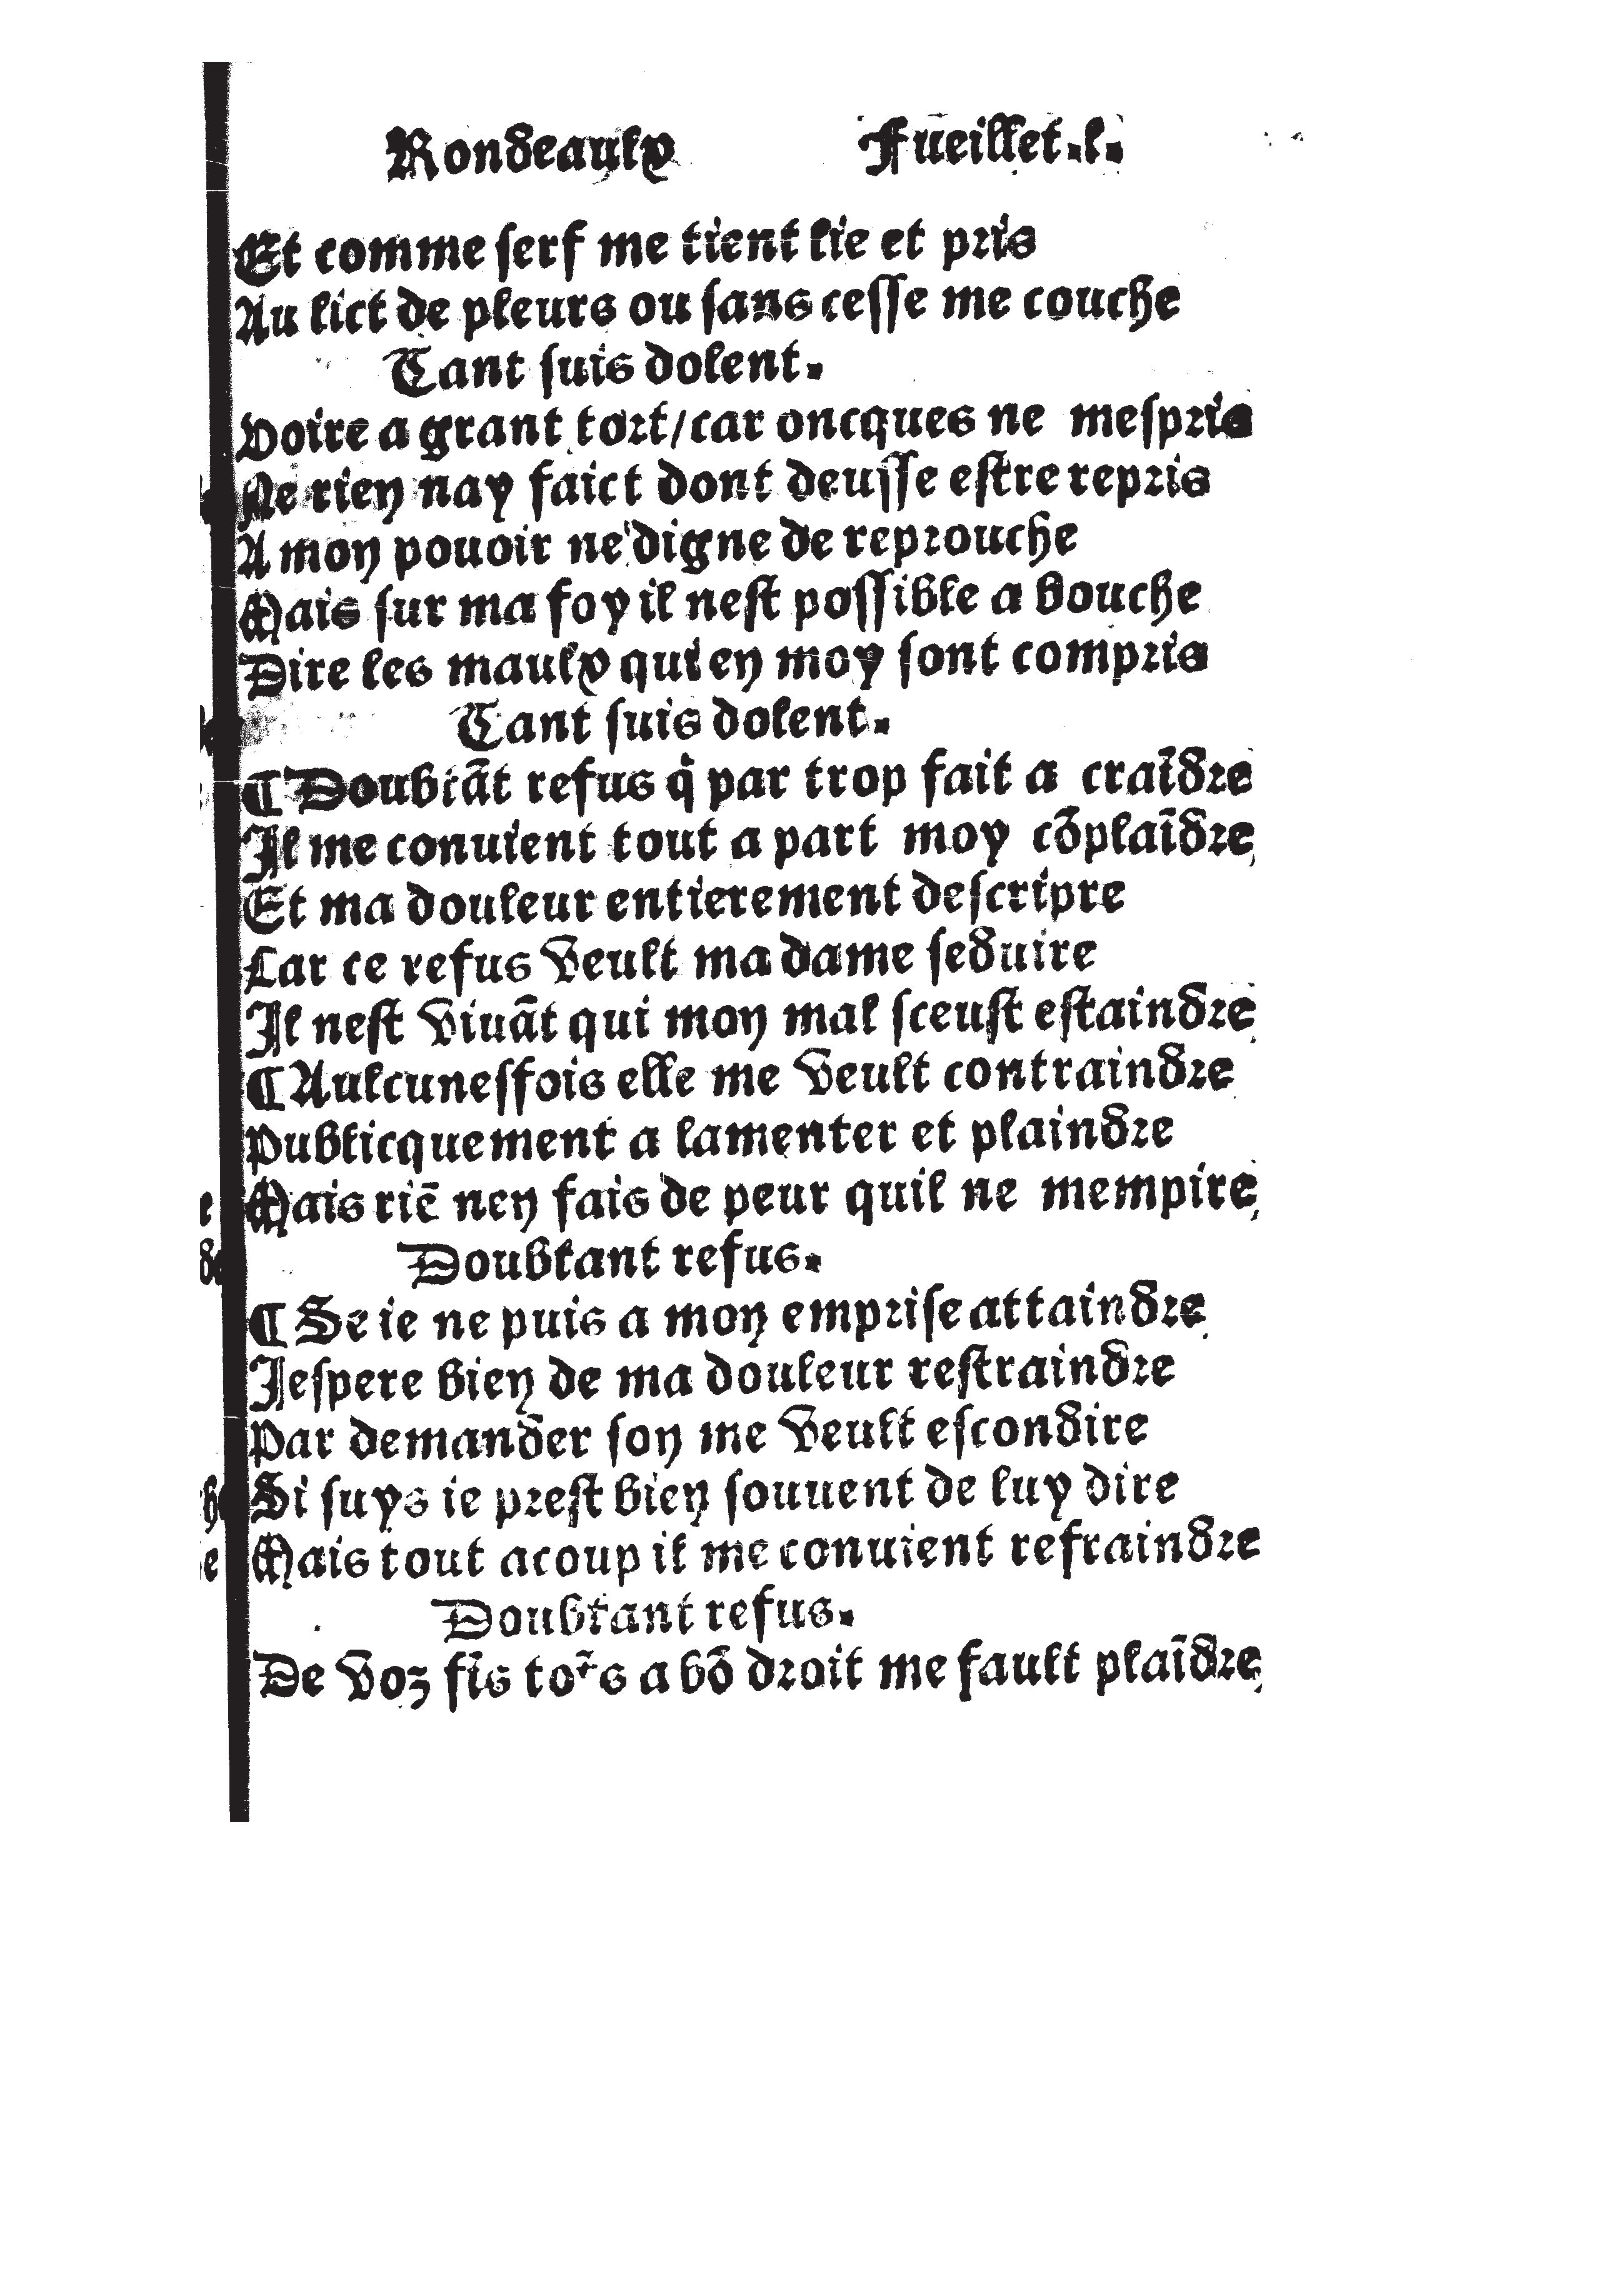 Rondeaulx Fueillet.l.
Et comme serf me tient lie et pris
Au lict de pleurs ou sans cesse me couche
Tant suis dolent.
Voire a grant tort/car oncques ne mespris
Ne rien nay faict dont deusse estre repris
A mon pouoir ne digne de reprouche
Mais sur ma foy il nest possible a bouche
Dire les maulx qui en moy sont compris
Tant suis dolent.
¶ Doubtãt refus q̇ par trop fait a craĩdre
Il me conuient tout a part moy cõplaĩdre
Et ma douleur entierement descripre
Car ce refus veult ma dame seduire
Il nest viuãt qui mon mal sceust estaindre
¶ Aulcunesfois elle me veult contraindre
Publicquement a lamenter et plaindre
Mais riẽ nen fais de peur quil ne mempire
Doubtant refus.
¶ Se ie ne puis a mon emprise attaindre
Jespere bien de ma douleur restraindre
Par demander son me veult escondire
Si suys ie prest bien souuent de luy dire
Mais tout acoup il me conuient refraindre
Doubtant refus.
De voz fĩs toʳs a bõ droit me fault plaĩdre